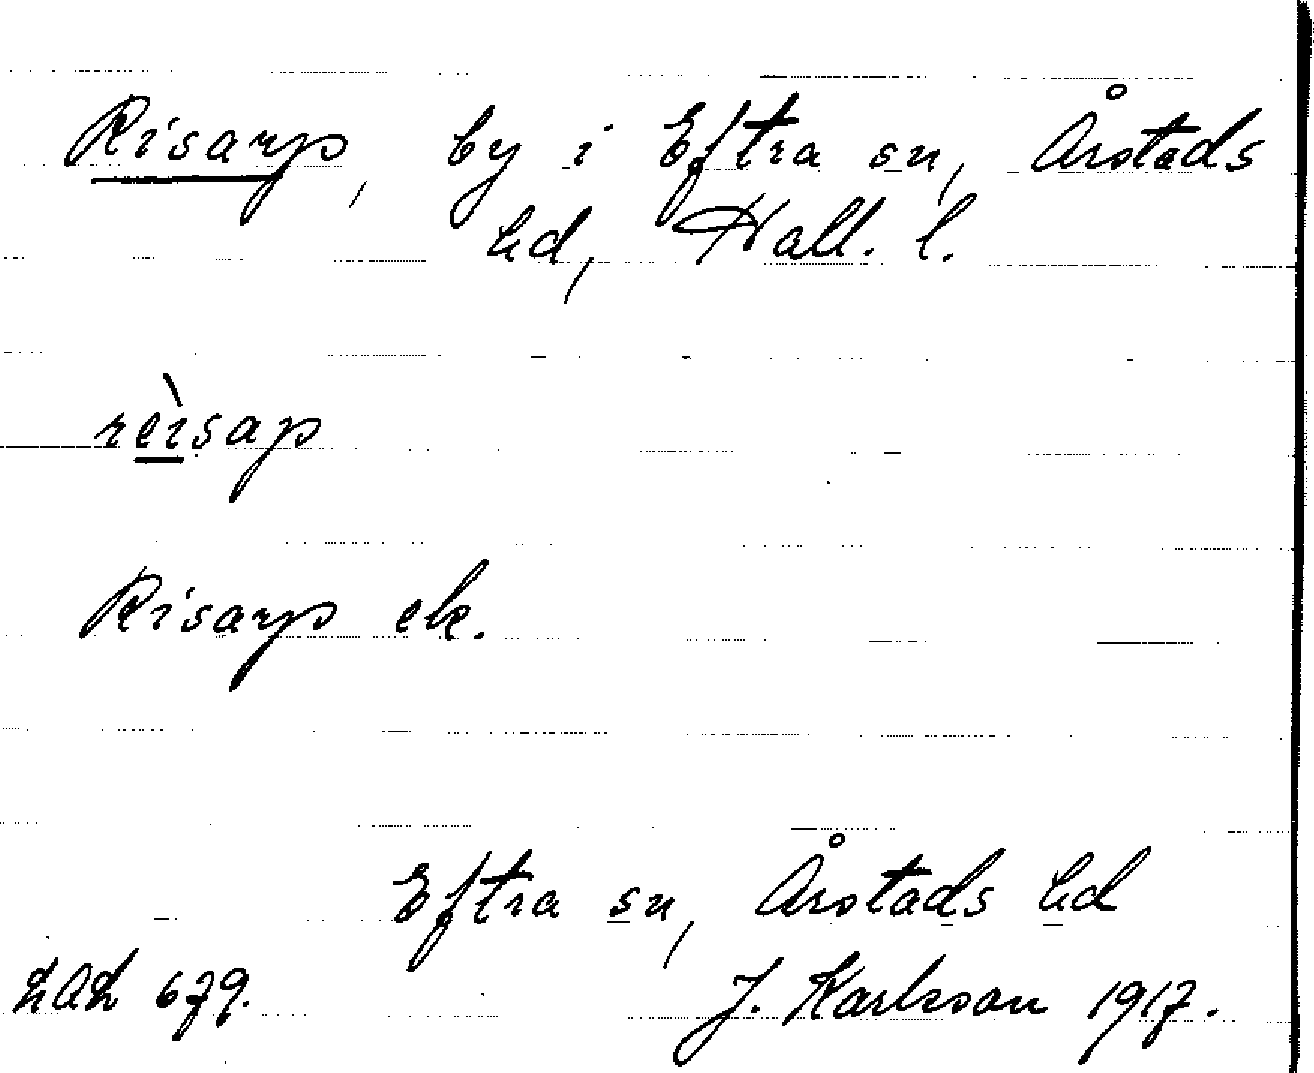 Risarp, by i Eftra sn, Årstads
hd, Hall. l.
rèisap
Risarp ek.
Eftra sn, Årstads hd
LAL 679. J. Karlsson 1917.